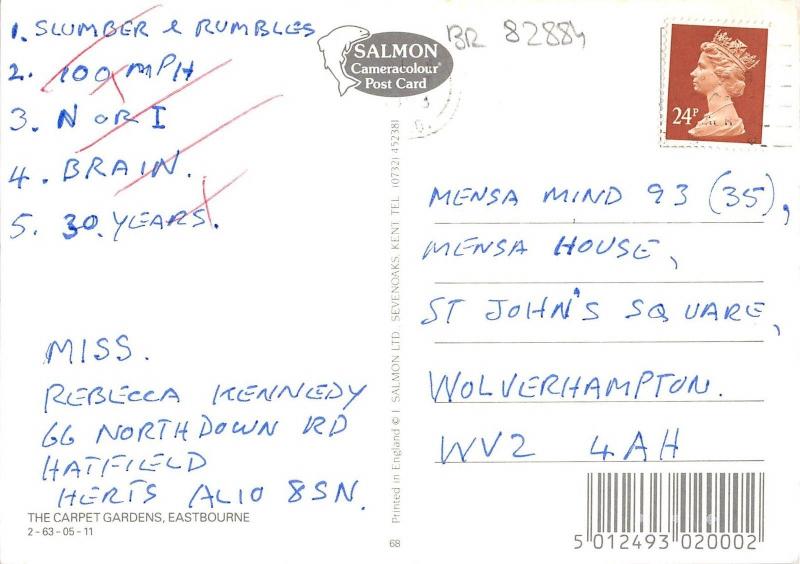 1. SLUMBER & RUMBLES
2. 100 MPH
3. NORI
4. BRAIN.
5. 30. YEARS.
MISS.
REBECCA KENNEDY
66 NORTHDOWN RD
HATFIELD
HERTS AL10 8SN.
THE CARPET GARDENS, EASTBOURNE
2-63-05-11
SALMON
Cameracolour
Post Card
Printed in England © J SALMON LTD. SEVENOAKS. KENT TEL (0732) 452381
68
BR 82884
24P
MENSA MIND 93 (35),
MENSA HOUSE,
ST JOHN'S SQUARE,
WOLVERHAMPTON.
WV2 4AH
5 012493 020002